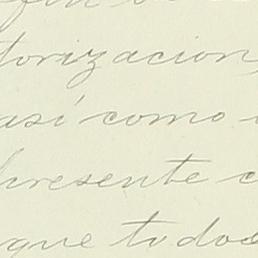 torizacion,
así como
presente c
que todos